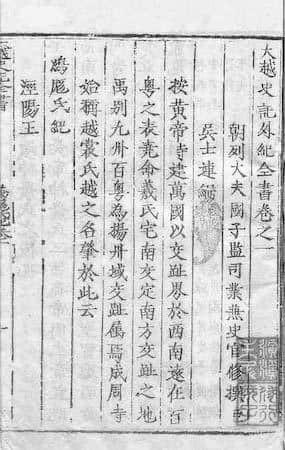 大越史記外紀全書卷之一
朝列大夫國子監司業兼史官修撰臣
吳士連編
按黃帝時建萬國以交趾界於西南遠在百
粵之表堯命羲氏宅南交定南方交趾之地
禹别九州百粵為揚州域交趾屬焉成周時
始稱越裳氏越之名肇於此云
鴻厖氏紀
涇陽王